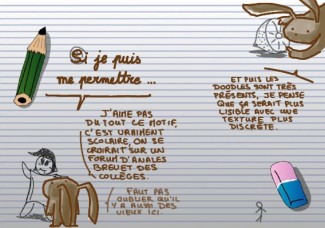 Si je puis
me permettre ...
J'AIME PAS
DU TOUT CE MOTIF.
C'EST VRAIMENT
SCOLAIRE, ON SE
CROIRAIT SUR UN
FORUM D'ANALES
BREVET DES
COLLÈGES.
FAUT PAS
OUBLIER QU'IL
Y A AUSSI DES
VIEUX ICI.
ET PUIS LES
DOODLES SONT TRÈS
PRÉSENTS, JE PENSE
QUE ÇA SERAIT PLUS
LISIBLE AVEC UNE
TEXTURE PLUS
DISCRÈTE.